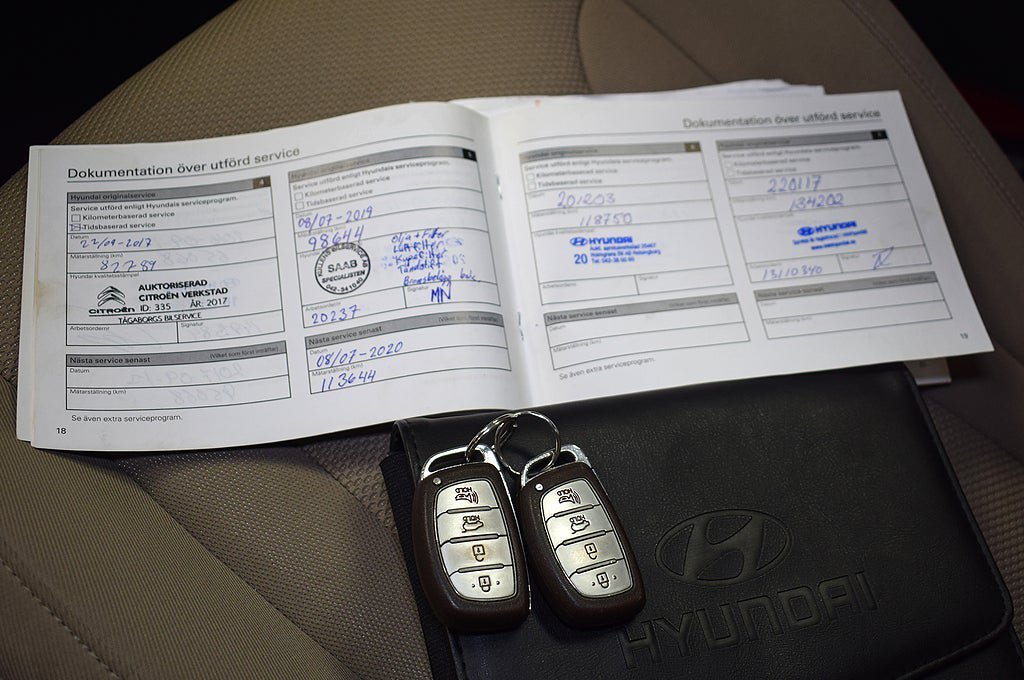 Dokumentation över utförd service
Hyundai originalservice 4
Service utförd enligt Hyundais serviceprogram.
Kilometerbaserad service
Tidsbaserad service
Datum
22/09-2017
Mätarställning (km)
Hyundai kvalitetsstämpel
AUKTORISERAD
CITROËN VERKSTAD
CITROËN ID: 335 ÅR: 2017
TÅGABORGS BILSERVICE
Arbetsordernr Signatur
Nästa service senast (Vilket som först inträffar)
Datum
Mätarställning (km)
Se även extra serviceprogram.
18
Hyundai originalservice 5
Service utförd enligt Hyundais serviceprogram.
Kilometerbaserad service
Tidsbaserad service
Datum
08/07-2019
98644
Olja + Filter
Luftfilter
Kupefilter
Tändstift
SAAB
SPECIALISTEN
MN
Arbetsordernr Signatur
20237
Nästa service senast (Vilket som först inträffar)
Datum
08/07-2020
Mätarställning (km)
113644
Dokumentation över utförd service
Hyundai originalservice 6
Service utförd enligt Hyundais serviceprogram.
Kilometerbaserad service
Tidsbaserad service
Datum
201203
Mätarställning (km)
118750
Hyundai kvalitetsstämpel
HYUNDAI
20
Arbetsordernr Signatur
Nästa service senast (Vilket som först inträffar)
Datum
Mätarställning (km)
Se även extra serviceprogram.
Hyundai originalservice 7
Service utförd enligt Hyundais serviceprogram.
Kilometerbaserad service
Tidsbaserad service
Datum
220117
Mätarställning (km)
134202
HYUNDAI
Arbetsordernr Signatur
13110340
Nästa service senast (Vilket som först inträffar)
Datum
Mätarställning (km)
19
HOLD
HOLD
HOLD
HOLD
HYUNDAI